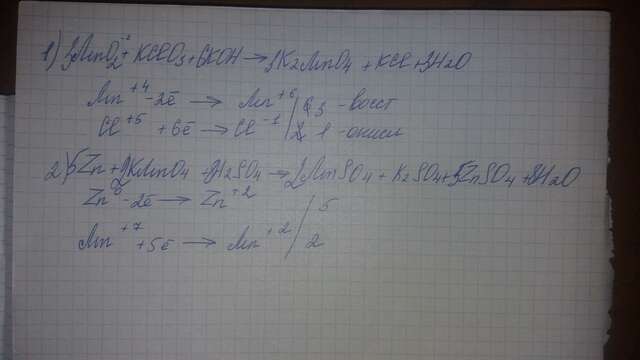 1) 3MnO2 + KClO3 + 6KOH → 3K2MnO4 + KCl + 3H2O
Mn+4 - 2ē → Mn+6 | 6 3 - восст
Cl+5 + 6ē → Cl-1 | 2 1 - окисл
2) 5Zn + 2KMnO4 + 8H2SO4 → 2MnSO4 + K2SO4 + 5ZnSO4 + 8H2O
Zn0 - 2ē → Zn+2 | 5
Mn+7 + 5ē → Mn+2 | 2